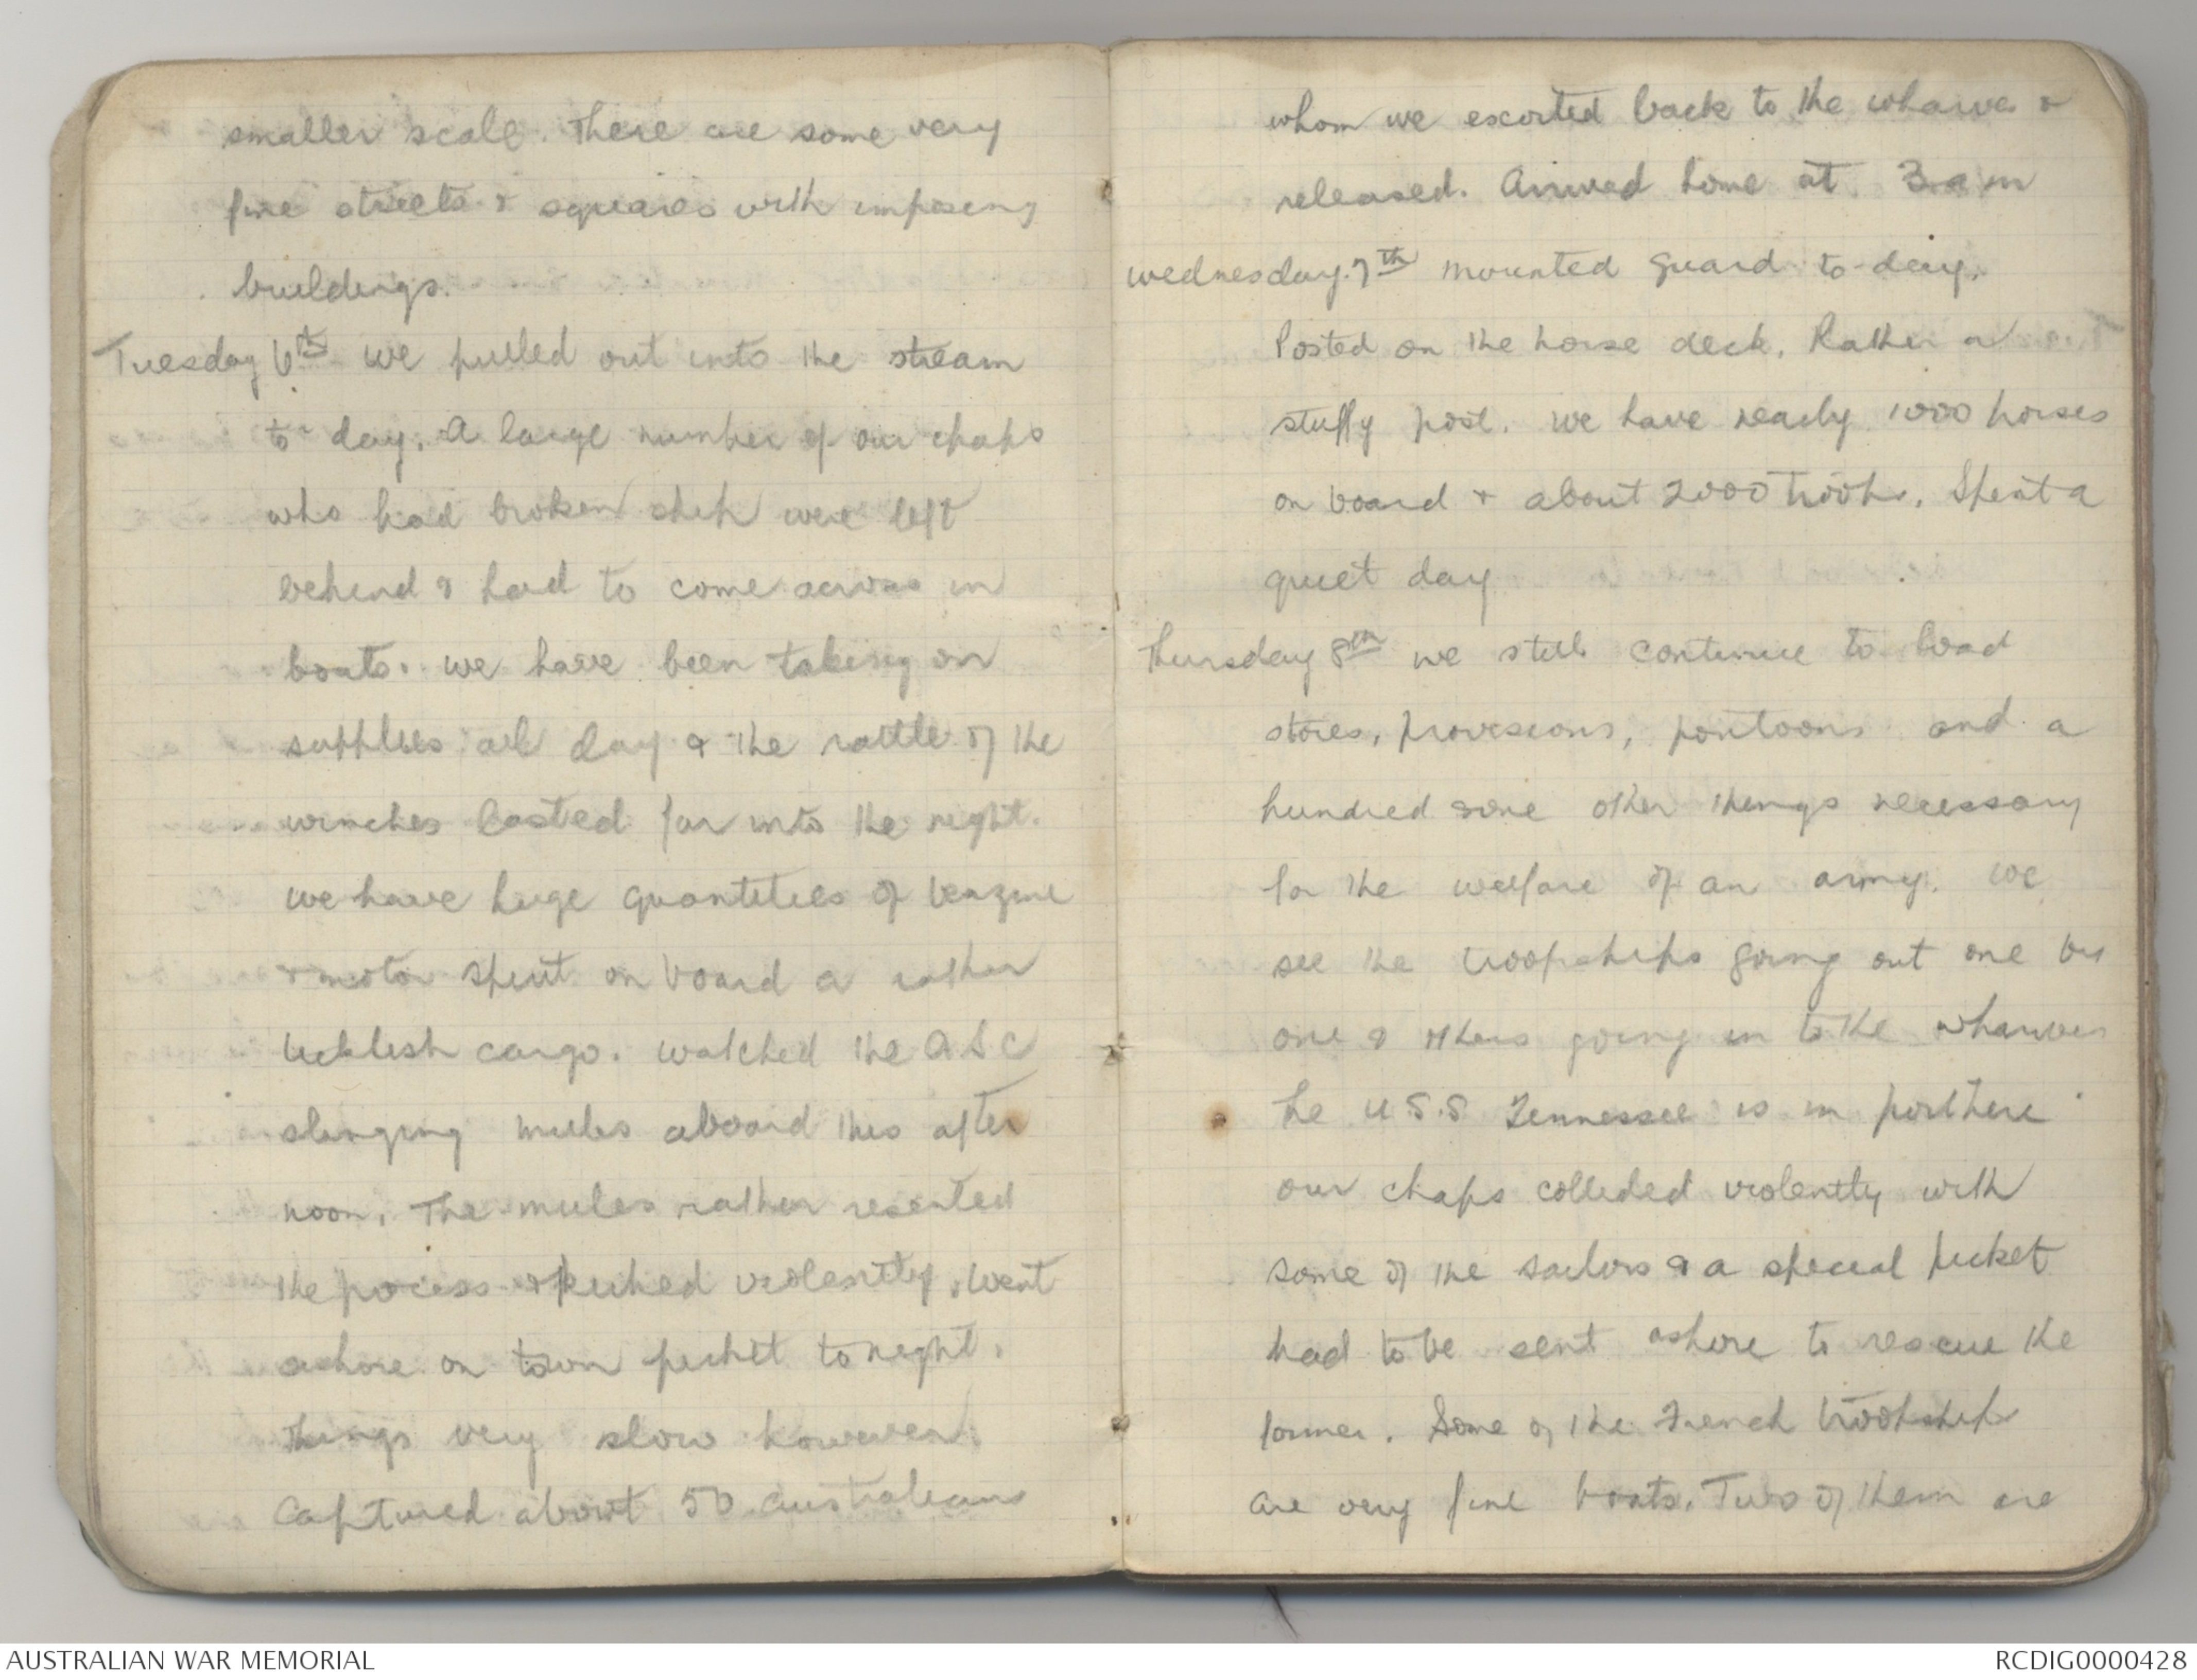 smaller scale. There are some very
fine streets & squares with imposing
buildings.
Tuesday 6th we pulled out into the stream
to day. A large number of our chaps
who had broken ship were left
behind & had to come across in
boats. we have been taking on
supplies all day & the rattle of the
winches lasted far into the night.
we have huge quantities of benzine
& motor spirit on board a rather
ticklish cargo. watched the ASC
slinging mules aboard this after
noon. The mules rather resented
the process & kicked violently. Went
ashore on town picket to night.
Things very slow however.
Captured about 50 Australians
whom we escorted back to the wharves &
released. Arrived home at 3 am
Wednesday. 7th mounted guard to-day.
Posted on the horse deck. Rather a
stuffy post. We have nearly 1000 horses
on board & about 2000 troops. Spent a
quiet day
Thursday 8th we still continue to load
stores, provisions, pontoons and a
hundred & one other things necessary
for the welfare of an army. We
see the troopships going out one by
one & others going in to the wharves
The U.S.S Tennessee is in port here
our chaps collided violently with
some of the sailors & a special picket
had to be sent ashore to rescue the
former. Some of the French troopships
are very fine boats. Two of them are
AUSTRALIAN WAR MEMORIAL
RCDIG0000428